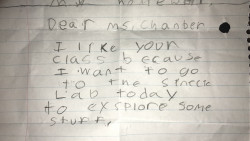 Dear ms. Chanber
I like your
class because
I want to go
to the
Lab today
to exsplore some
stuff.